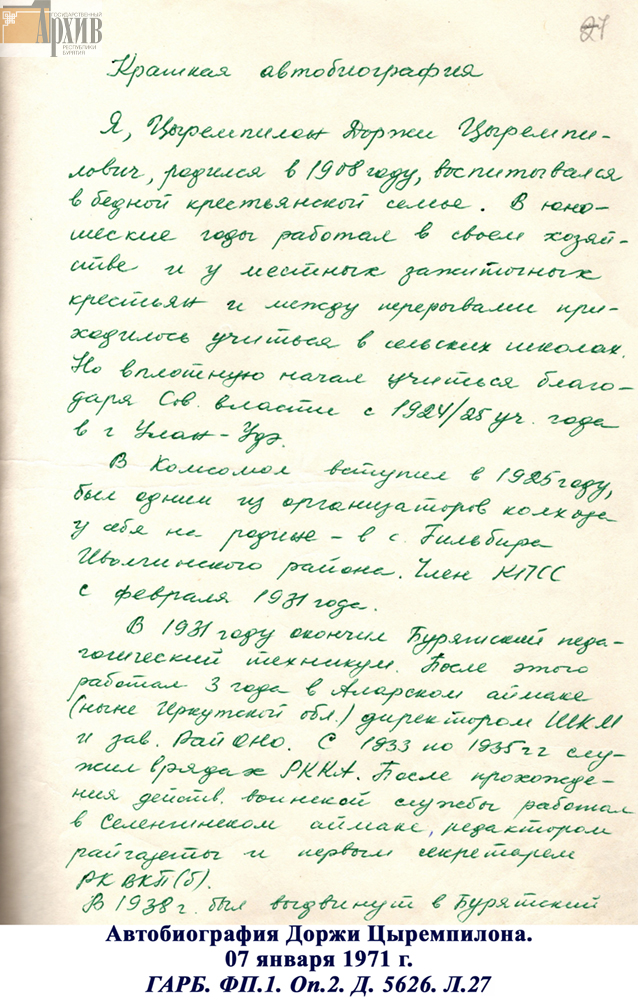 ГОСУДАРСТВЕННЫЙ
Архив
РЕСПУБЛИКИ
БУРЯТИЯ
27
Краткая автобиография
Я, Цыремпилон Доржи Цыремпи-
лович, родился в 1908 году, воспитывался
в бедной крестьянской семье. В юно-
шеские годы работал в своем хозяй-
стве и у местных зажиточных
крестьян и между перерывами при-
ходилось учиться в сельских школах.
Но вплотную начал учиться благо-
даря Сов. власти с 1924/25 уч. года
в г Улан-Удэ.
В Комсомол вступил в 1925 году,
был одним из организаторов колхоза
у себя на родине - в с. Гильбира
Иволгинского района. Член КПСС
с февраля 1931 года.
В 1931 году окончил Бурятский педа-
гогический техникум. После этого
работал 3 года в Аларском аймаке
(ныне Иркутской обл.) директором ШКМ
и зав. РайОНО. С 1933 по 1935 гг слу-
жил в рядах РККА. После прохожде-
ния действ. воинской службы работал
в Селенгинском аймаке, редактором
райгазеты и первым секретарем
РК ВКП(б).
В 1938 г. был выдвинут в Бурятский
Автобиография Доржи Цыремпилона.
07 января 1971 г.
ГАРБ. ФП.1. Оп.2. Д. 5626. Л.27